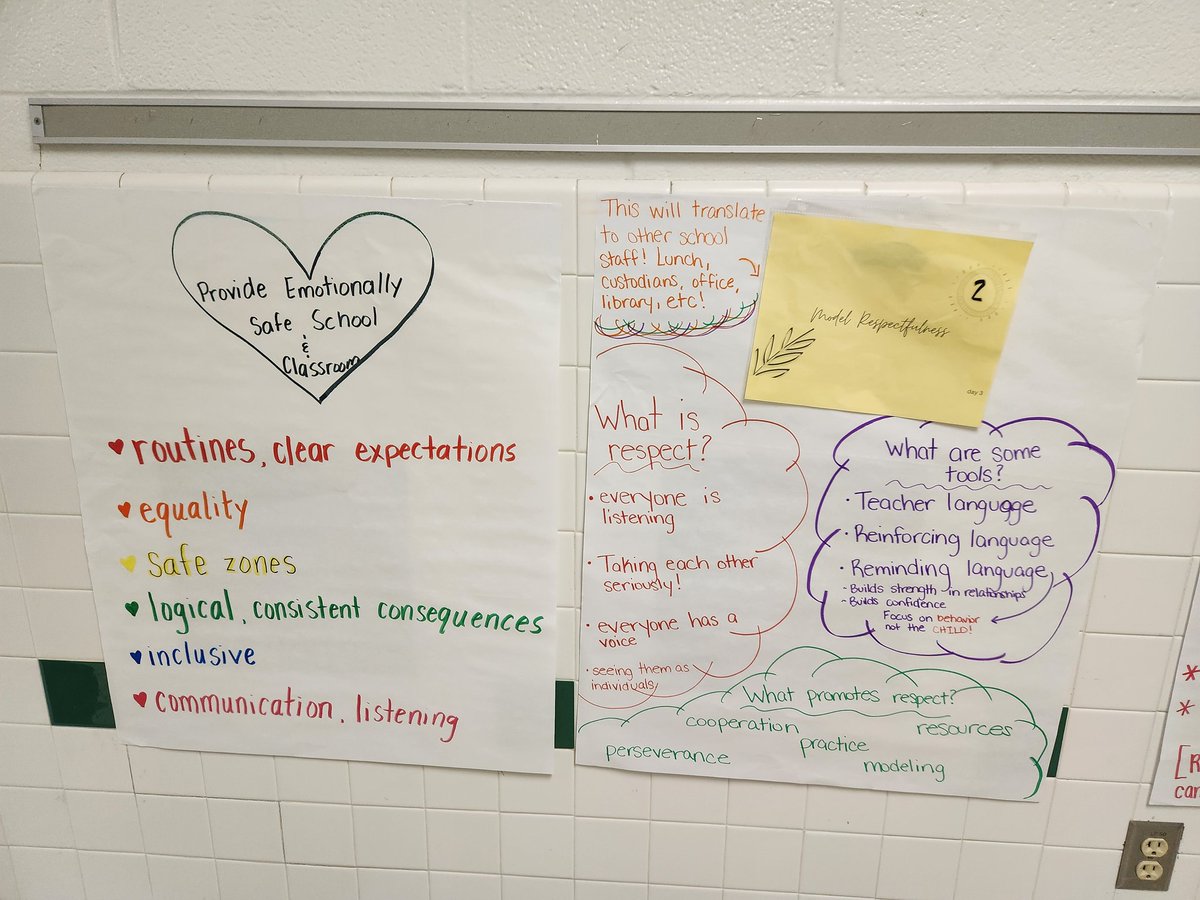 Provide Emotionally
Safe School
&
Classroom
routines, clear expectations
equality
safe zones
logical, consistent consequences
inclusive
communication, listening
This will translate
to other school
staff! Lunch,
custodians, office,
library, etc!
2
Model Respectfulness
day 3
What is
respect?
• everyone is
listening
• Taking each other
seriously!
• everyone has a
voice
• seeing them as
individuals
What are some
tools?
• Teacher langugge
• Reinforcing language
• Reminding language
- Builds strength in relationships
- Builds confidence
Focus on behavior
not the CHILD!
What promotes respect?
cooperation
resources
perseverance
practice
modeling
*
*
[R
can